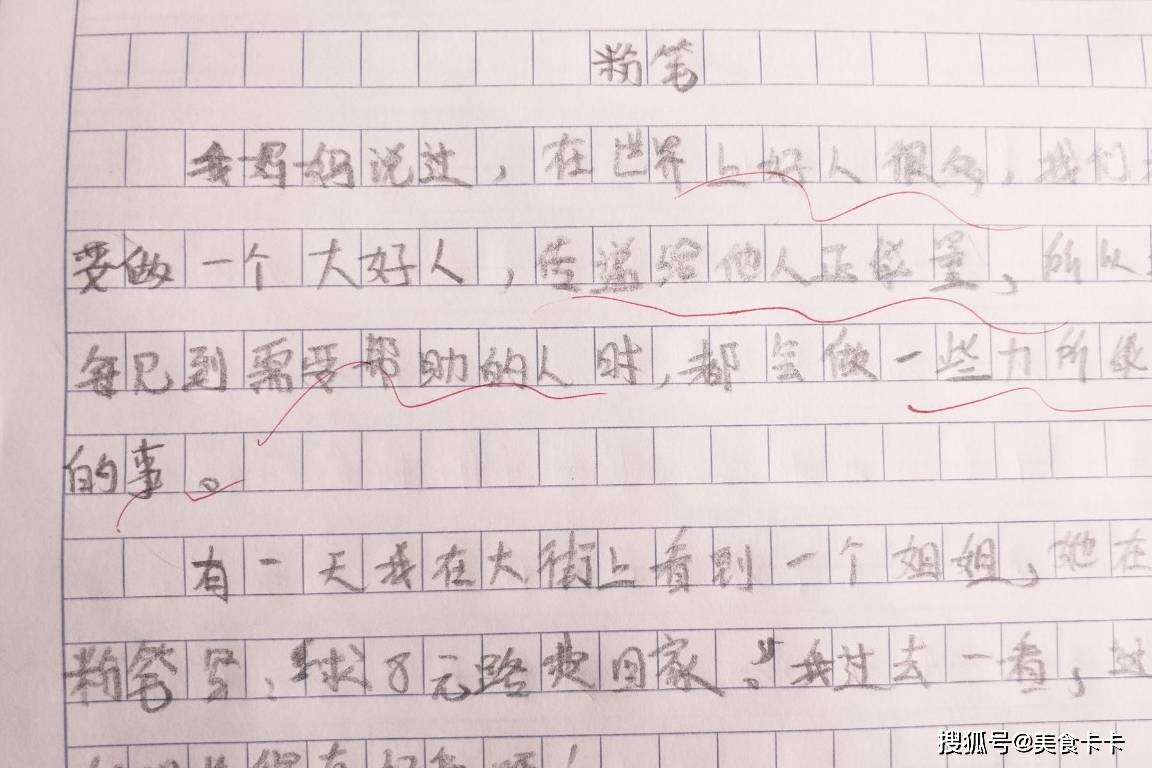 粉笔
我妈妈说过，在世界上好人很多，我们
要做一个大好人，传递给他人正能量，所以
每见到需要帮助的人时，都会做一些力所能
的事。
有一天我在大街上看到一个姐姐，她在
粉笔写：“求8元路费回家。”我过去一看，过
搜狐号@美食卡卡